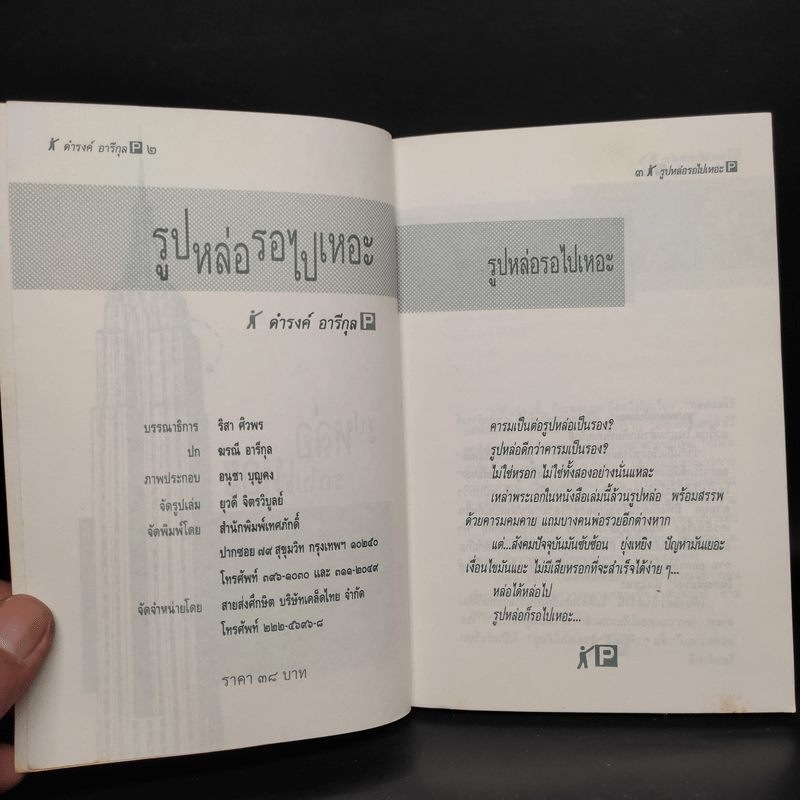 ดำรงค์ อารีกุล P ๒
รูปหล่อรอไปเหอะ
ดำรงค์ อารีกุล P
บรรณาธิการ ริสา ศิวพร
ปก ฆรณี อารีกุล
ภาพประกอบ อนุชา บุญคง
จัดรูปเล่ม ยุวดี จิตรวิบูลย์
จัดพิมพ์โดย สำนักพิมพ์เทศภักดิ์
ปากซอย ๗๙ สุขุมวิท กรุงเทพฯ ๑๐๒๕๐
โทรศัพท์ ๓๙๖-๑๐๓๐ และ ๓๑๑-๒๐๔๙
จัดจำหน่ายโดย สายส่งศึกษิต บริษัทเคล็ดไทย จำกัด
โทรศัพท์ ๒๒๒-๕๖๙๖-๘
ราคา ๓๘ บาท
๓ รูปหล่อรอไปเหอะ P
รูปหล่อรอไปเหอะ
คารมเป็นต่อรูปหล่อเป็นรอง?
รูปหล่อดีกว่าคารมเป็นรอง?
ไม่ใช่หรอก ไม่ใช่ทั้งสองอย่างนั่นแหละ
เหล่าพระเอกในหนังสือเล่มนี้ล้วนรูปหล่อ พร้อมสรรพ
ด้วยคารมคมคาย แถมบางคนพ่อรวยอีกต่างหาก
แต่...สังคมปัจจุบันมันซับซ้อน ยุ่งเหยิง ปัญหามันเยอะ
เงื่อนไขมันแยะ ไม่มีเสียหรอกที่จะสำเร็จได้ง่าย ๆ...
หล่อได้หล่อไป
รูปหล่อก็รอไปเหอะ...
P